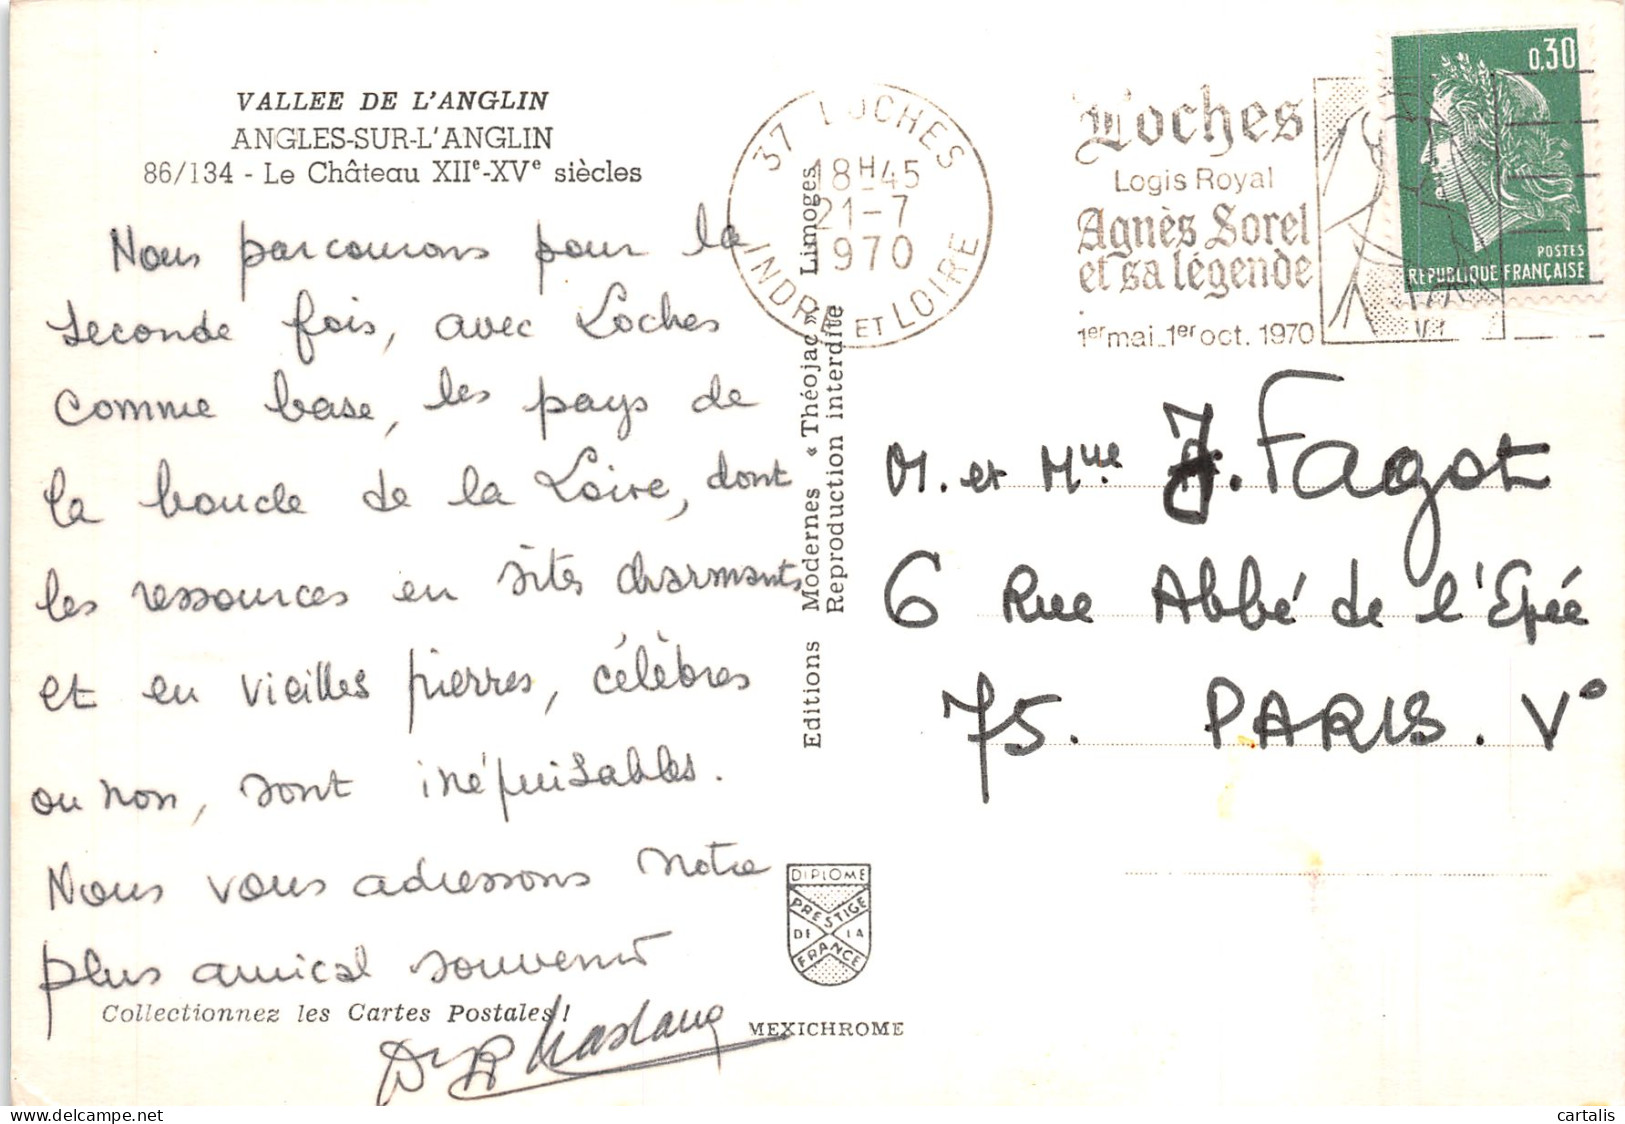 VALLEE DE L'ANGLIN
ANGLES-SUR-L'ANGLIN
86/134 - Le Château XIIe-XVe siècles
Nous parcourons pour la
seconde fois, avec Loches
comme base, les pays de
la boucle de la Loire, dont
les ressources en sites charmants
et en vieilles pierres, célèbres
ou non, sont inépuisables.
Nous vous adressons notre
plus amical souvenir
Collectionnez les Cartes Postales !
Editions Modernes « Théojac » Limoges
Reproduction interdite
37 LOCHES
18H45
21-7
1970
INDRE ET LOIRE
Loches
Logis Royal
Agnès Sorel
et sa légende
1er mai_1er oct. 1970
0,30
POSTES
REPUBLIQUE FRANÇAISE
M. et Mme J. Fagot
6 Rue Abbé de l'Epée
75. PARIS. V°
DIPLOME
PRESTIGE
DE LA
FRANCE
MEXICHROME
cartalis